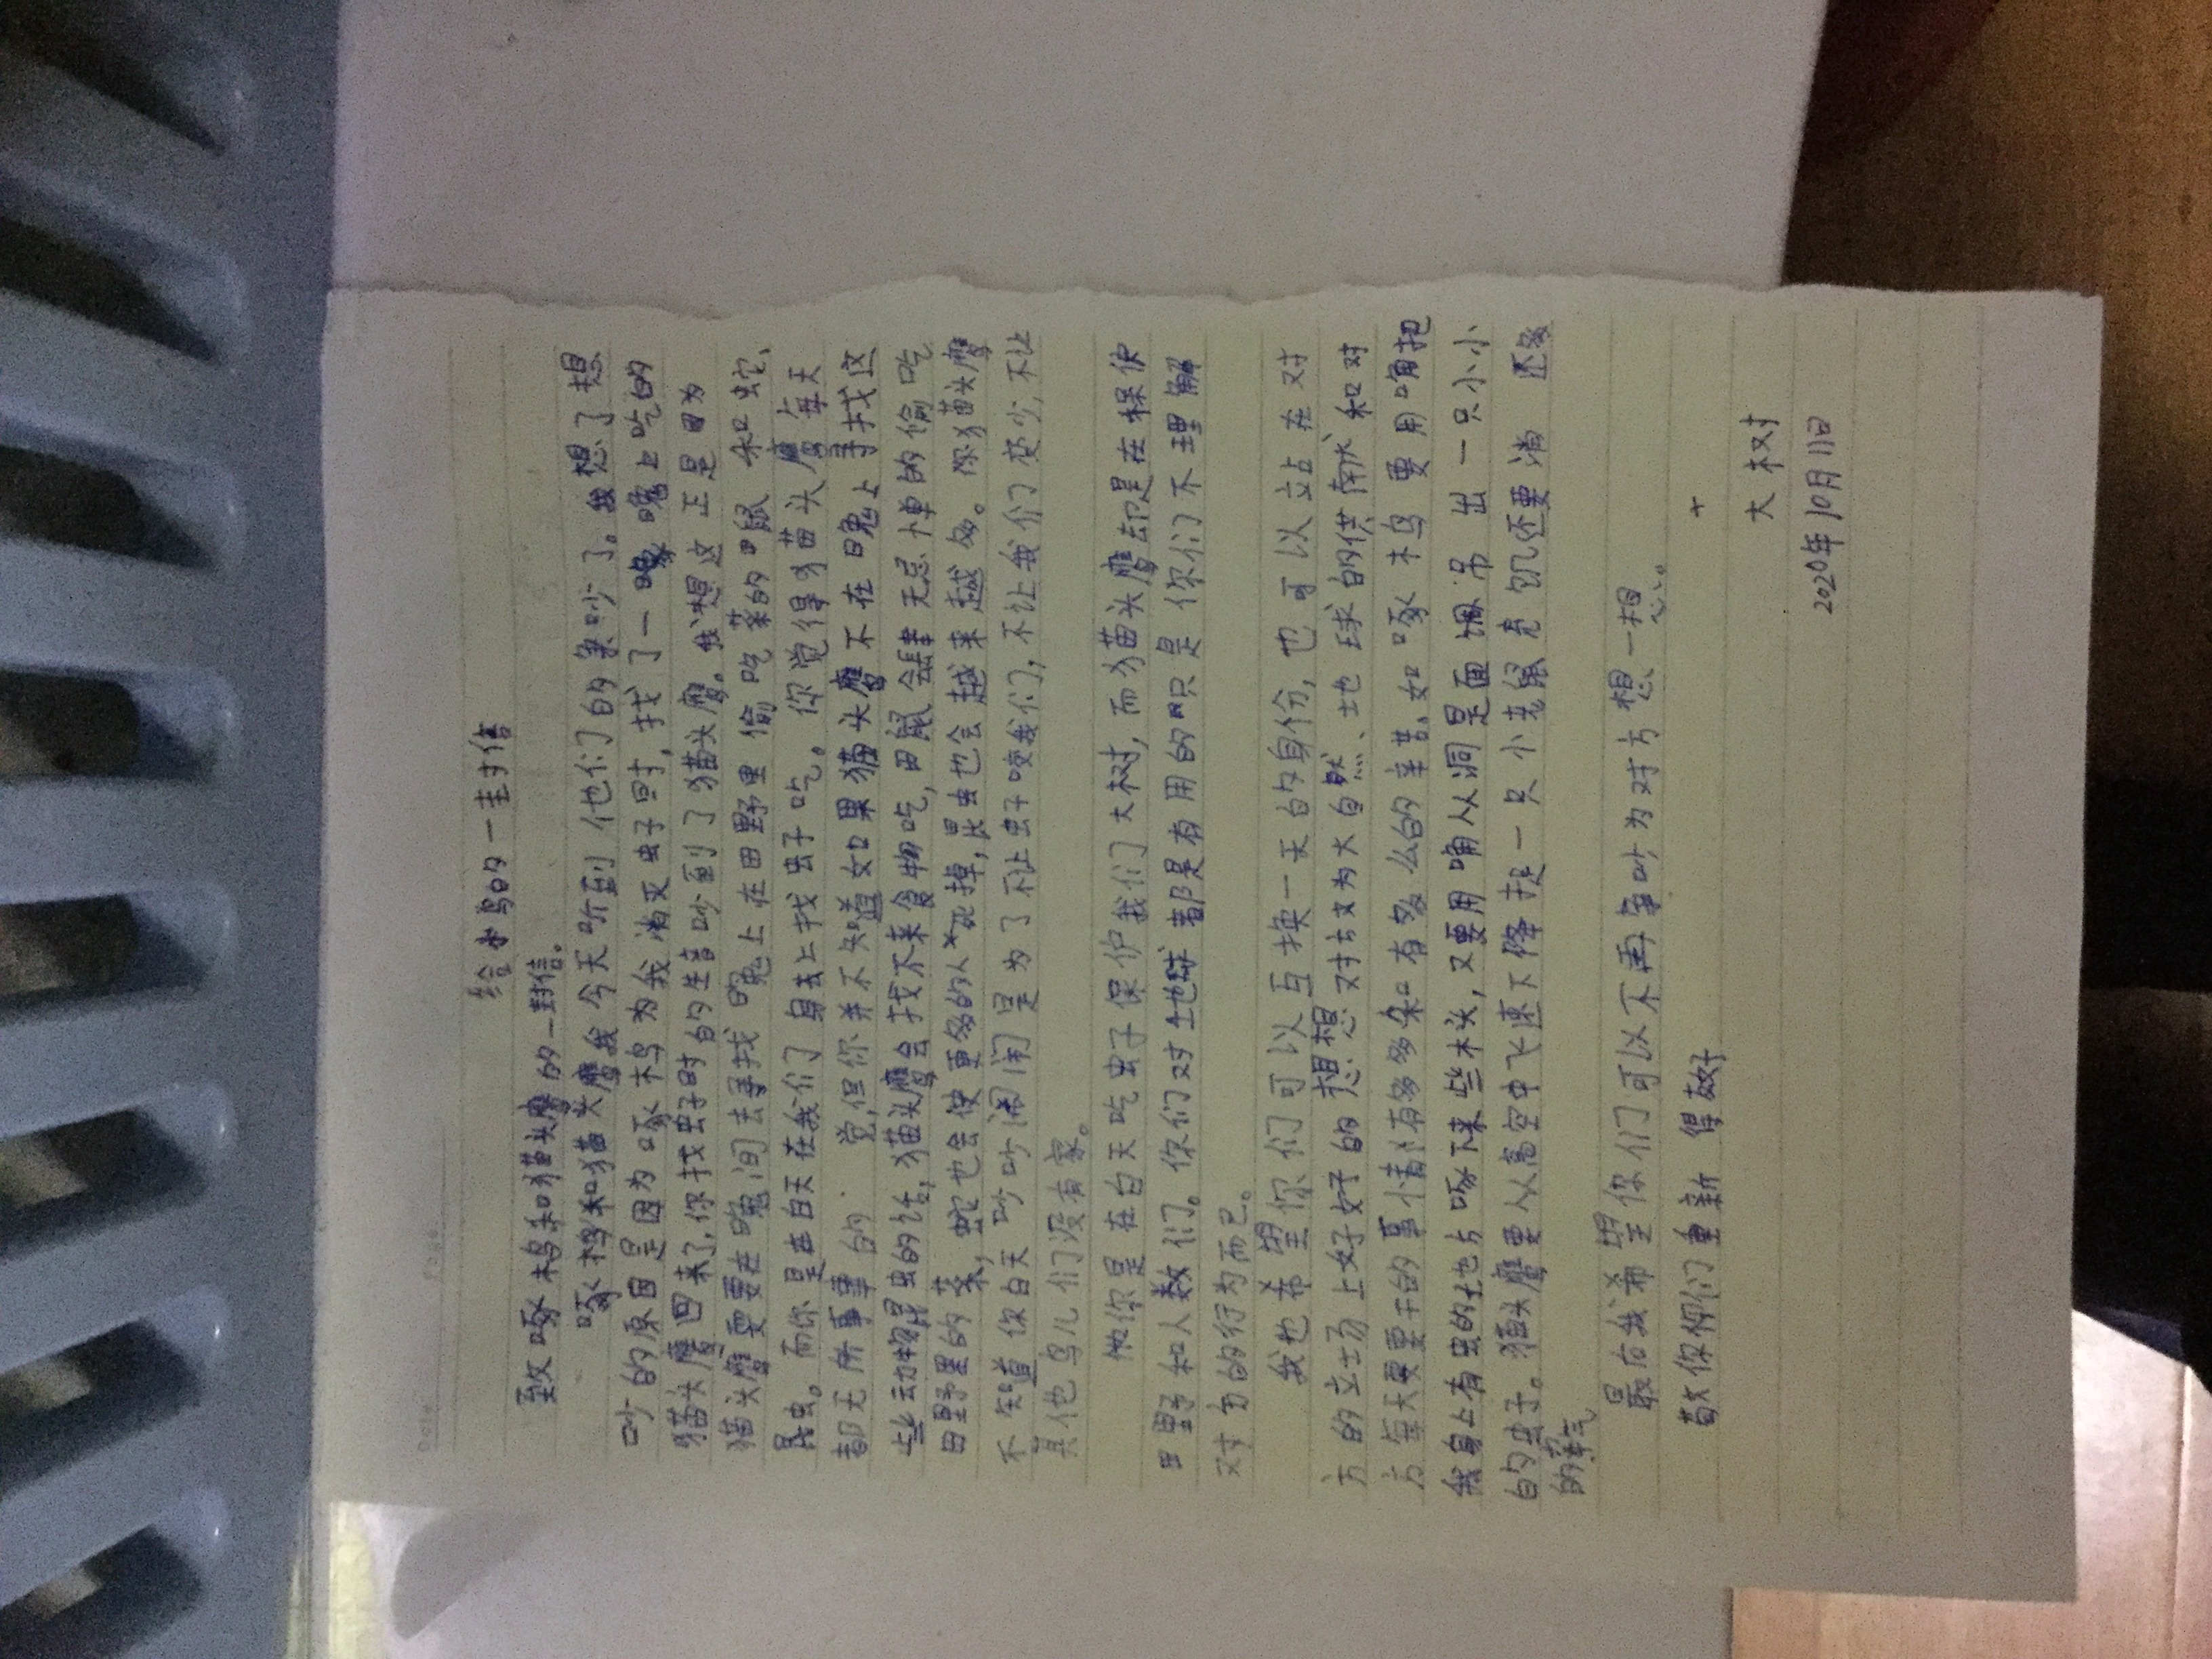 给 鸟的一封信
致啄木鸟和猫头鹰的一封信。
啄木鸟和猫头鹰我今天听到他们的争吵了。我想了想
吵的原因是因为啄木鸟为我消灭虫子时,找了一 晚上吃的
猫头鹰回来了,你找虫子时的声音吵到了猫头鹰。我想这正是因为
猫头鹰要要在晚间去寻找 晚上在田野里偷吃菜的田鼠和蛇、
昆虫。而你是在白天在我们身去上找虫子吃。你觉得猫头鹰每天
都无所事事的 觉,但你并不知道如果猫头鹰不在晚上寻找这
些动物昆虫的话,猫头鹰会找不来食物吃,田鼠会肆无忌惮的偷吃
田野里的菜,蛇也会使更多的人死掉,昆虫也会越来越多。你猫头鹰
不知道你白天吵吵闹闹是为了不让虫子咬我们,不让我们变少,不让
其他鸟儿们没有家。
你是在白天吃虫子保护我们大树,而猫头鹰却是在保护
田野和人类们。你们对地球都是有用的只是你们不理解
对方的行为而已。
我也希望你们可以互换一天的身份,也可以站在对
方的立场上好好的想想对方为大自然、地球的供献和对
方每天要要干的事情有多多和有多么的辛苦。如啄木鸟要用嘴把
我身上有虫的地方啄下来些木头,又要用嘴从洞里面 吊出一只小小
的虫子。猫头鹰要从高空中飞速下降抓起一只小老鼠充饥还要消 还多
的 气
最后我希望你们可以不再争吵为对方想一想。
敬你们重新 得友好
大树
2020年10月11日